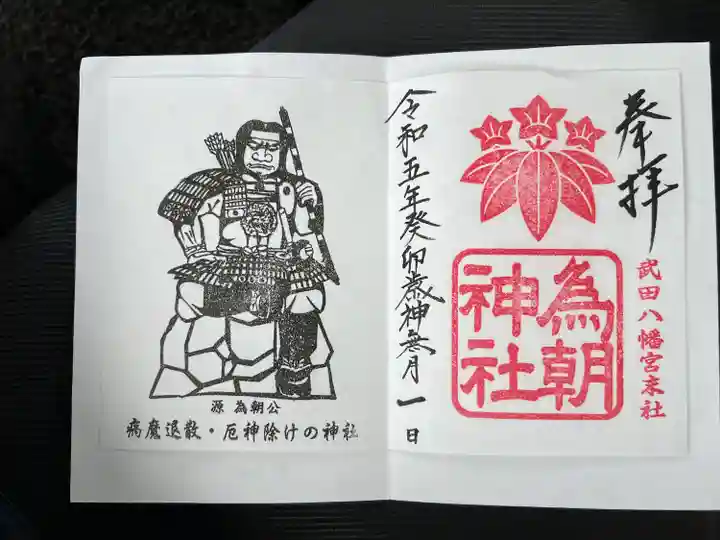 奉拝
武田八幡宮末社
為朝
神社
令和五年癸卯歳神無月一日
源為朝公
病魔退散・厄神除けの神社